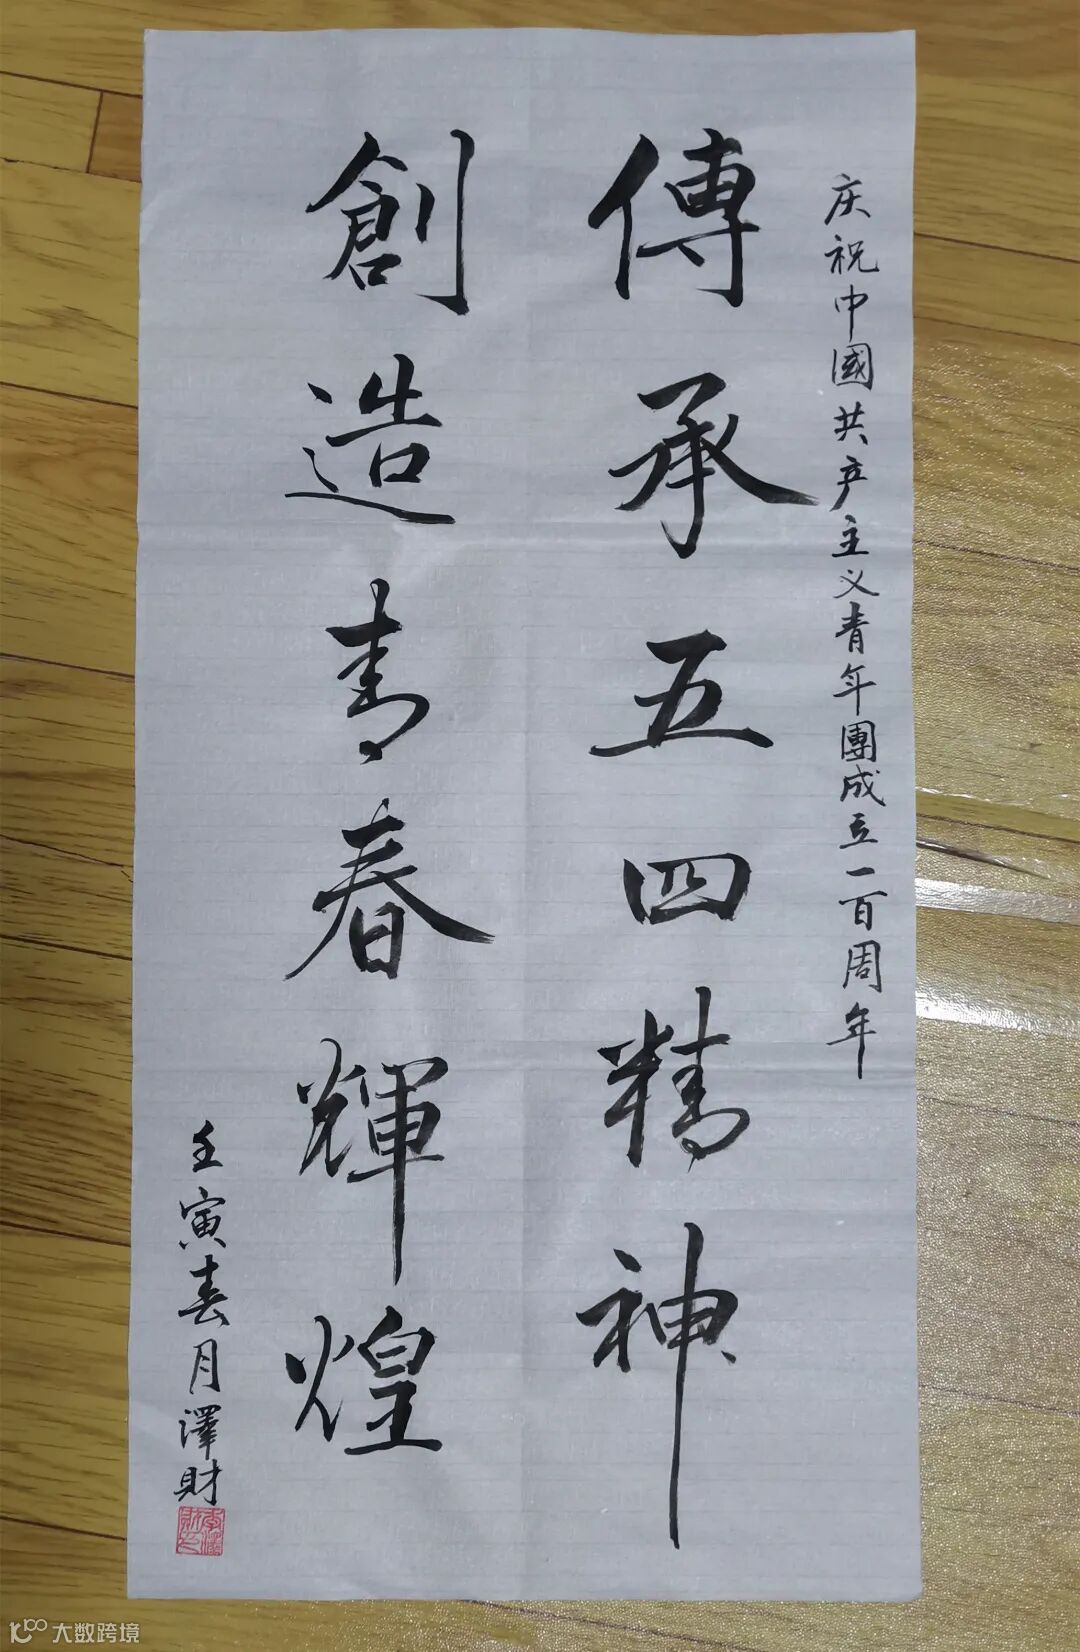 庆祝中國共产主义青年團成立一百周年
傳承五四精神
創造青春輝煌
壬寅春月澤財
李澤財印
大数跨境